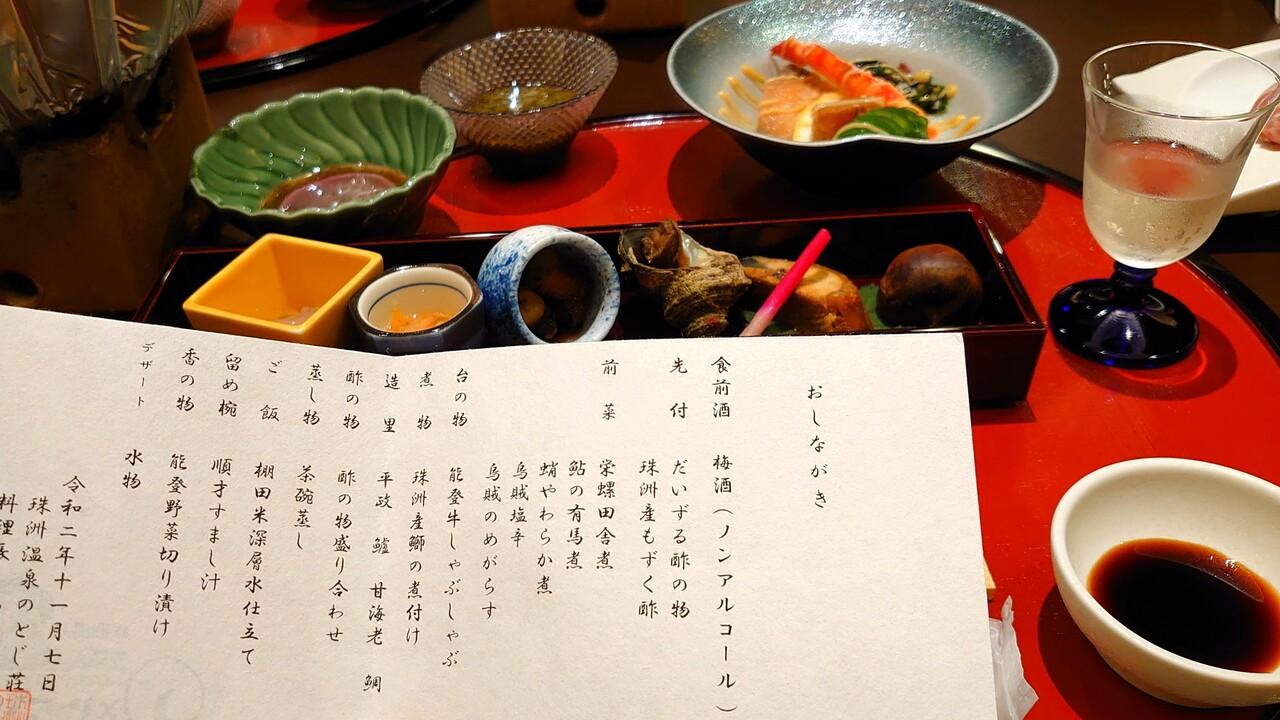 おしながき
食前酒 梅酒（ノンアルコール）
先付 だいずる酢の物
珠洲産もずく酢
前菜 栄螺田舎煮
鮎の有馬煮
蛸やわらか煮
烏賊塩辛
烏賊のめがらす
台の物 能登牛しゃぶしゃぶ
煮物 珠洲産鰤の煮付け
造里 平政 鱸 甘海老 鯛
酢の物 酢の物盛り合わせ
蒸し物 茶碗蒸し
ご飯 棚田米深層水仕立て
留め椀 順才すまし汁
香の物 能登野菜切り漬け
デザート 水物
令和二年十一月七日
珠洲温泉のとじ荘
料理長